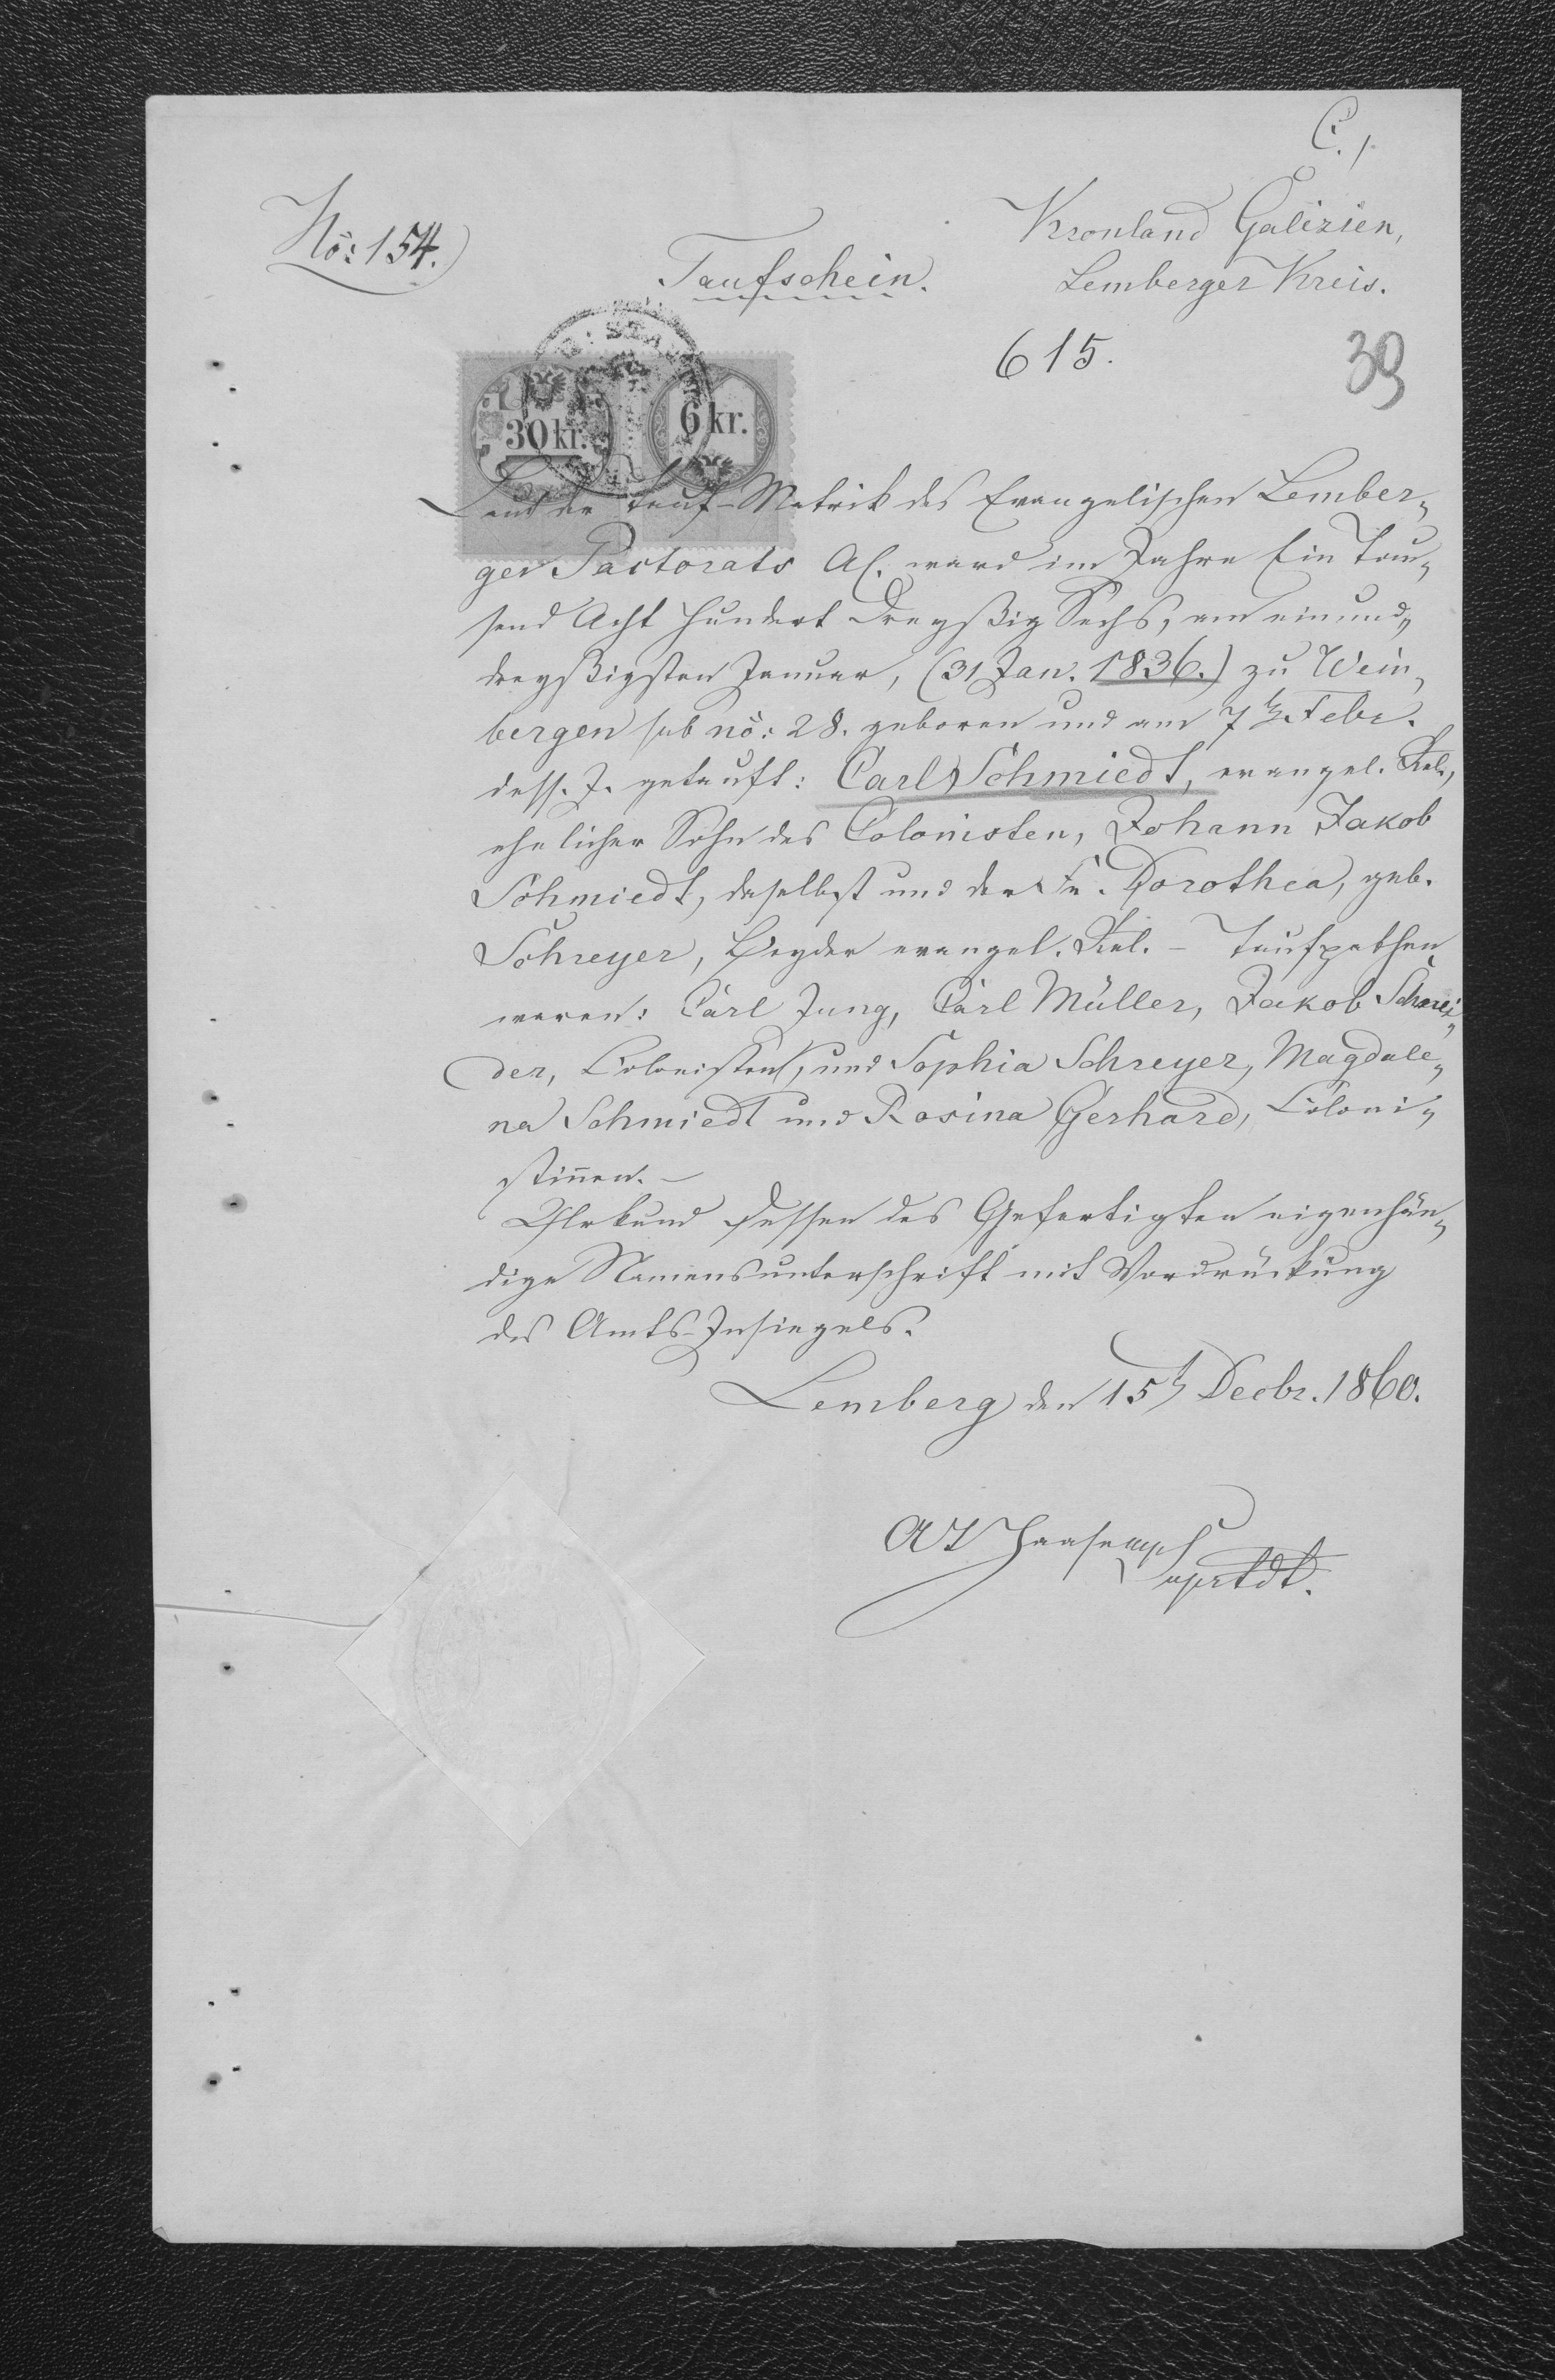 C./.
No: 154.
Kronland Galizien,
Taufschein.
Lemberger Kreis.
615.
39
30 kr.
6 kr.
Laut der Tauf-Matrik des Evangelischen Lember-
ger Pastorats A.C. ward im Jahre Ein Tau-
send Acht Hundert Dreyßig Sechs, am einund-
dreyßigsten Januar, (31 Jan. 1836.) zu Wein-
bergen sub no: 28. geboren und am 7t. Febr.
dess. J. getauft: Carl Schmiedt, evangel. Rel.,
ehelicher Sohn des Colonisten, Johann Jakob
Schmiedt, daselbst und der Fr. Dorothea, geb.
Schreyer, Beyder evangel. Rel. - Taufpathen
waren: Carl Jung, Carl Müller, Jakob Schnei-
der, Colonisten, und Sophia Schreyer, Magdale-
na Schmiedt und Rosina Gerhard, Coloni-
stinnen. -
Urkund dessen des Gefertigten eigenhän-
dige Namensunterschrift mit Vordrückung
des Amts-Insiegels.
Lemberg den 15t Decbr. 1860.
Suprtdt.